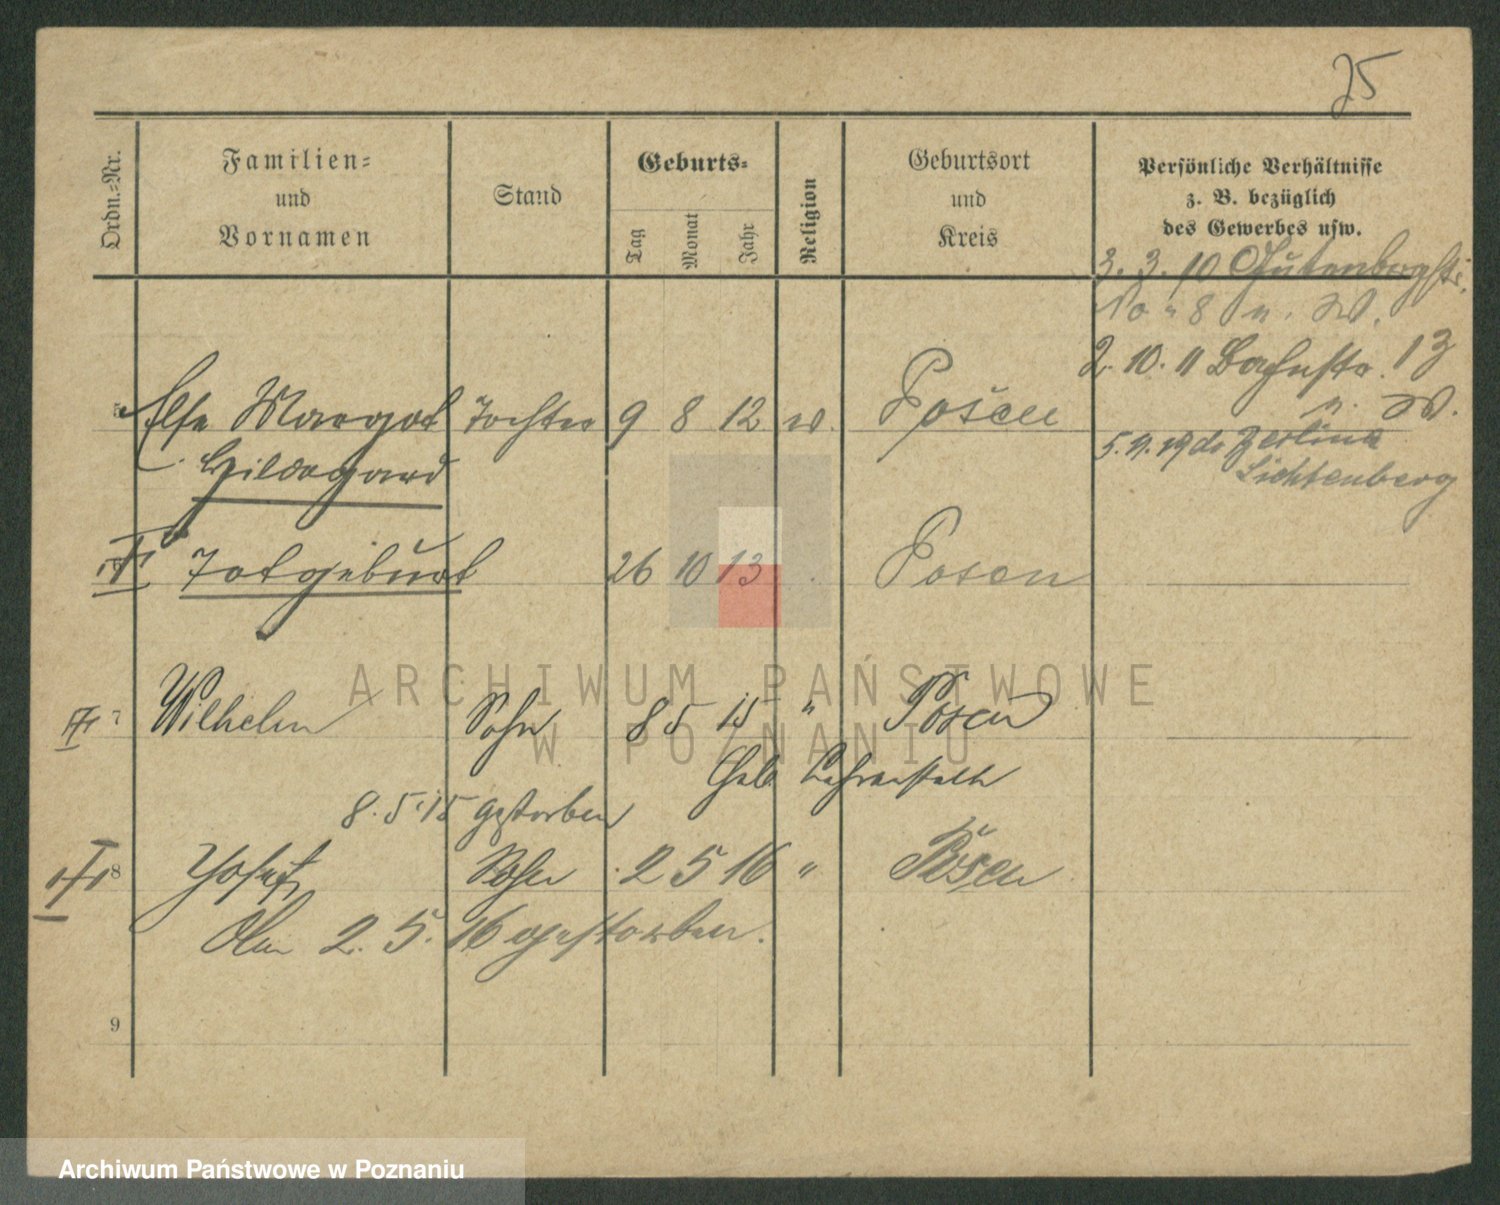 75
Ordn.-Nr.
Familien-
und
Vornamen
Stand
Geburts-
Tag
Monat
Jahr
Religion
Geburtsort
und
Kreis
Persönliche Verhältnisse
z. B. bezüglich
des Gewerbes usw.
3. 3. 10 Gutenbergstr.
10 " 8 n. W.
2. 10. 11 Bahnstr. 13
n. W.
5. Else Margot Tochter 9 8 12 Posen
Hildegard
Lichtenberg
Totgeburt 26 10 13 Posen
7 Wilhelm Sohn 8 5 15 " Posen
Geb.
8. 5. 15 gestorben
8 Josef Sohn 2 5 16 " Posen
2. 5. 16 gestorben.
9
ARCHIWUM PAŃSTWOWE
W POZNANIU
Archiwum Państwowe w Poznaniu